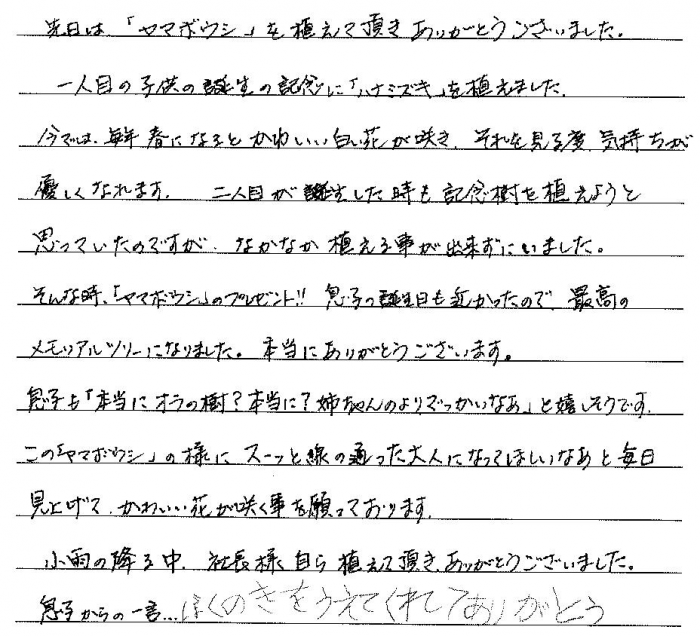 先日は「ヤマボウシ」を植えて頂きありがとうございました。
一人目の子供の誕生の記念に「ハナミズキ」を植えました。
今では、毎年春になるとかわいい白い花が咲き、それを見る度、気持ちが
優しくなれます。 二人目が誕生した時も記念樹を植えようと
思っていたのですが、なかなか植える事が出来ずにいました。
そんな時、「ヤマボウシ」のプレゼント!! 息子の誕生日も近かったので、最高の
メモリアルツリーになりました。本当にありがとうございます。
息子も「本当にオラの樹?本当に?姉ちゃんのよりでっかいなあ」と嬉しそうです。
この「ヤマボウシ」の様にスーッと線の通った大人になってほしいなあと毎日
見上げて、かわいい花が咲く事を願っております。
小雨の降る中、社長様自ら植えて頂き、ありがとうございました。
息子からの一言…ぼくのきをうえてくれてありがとう